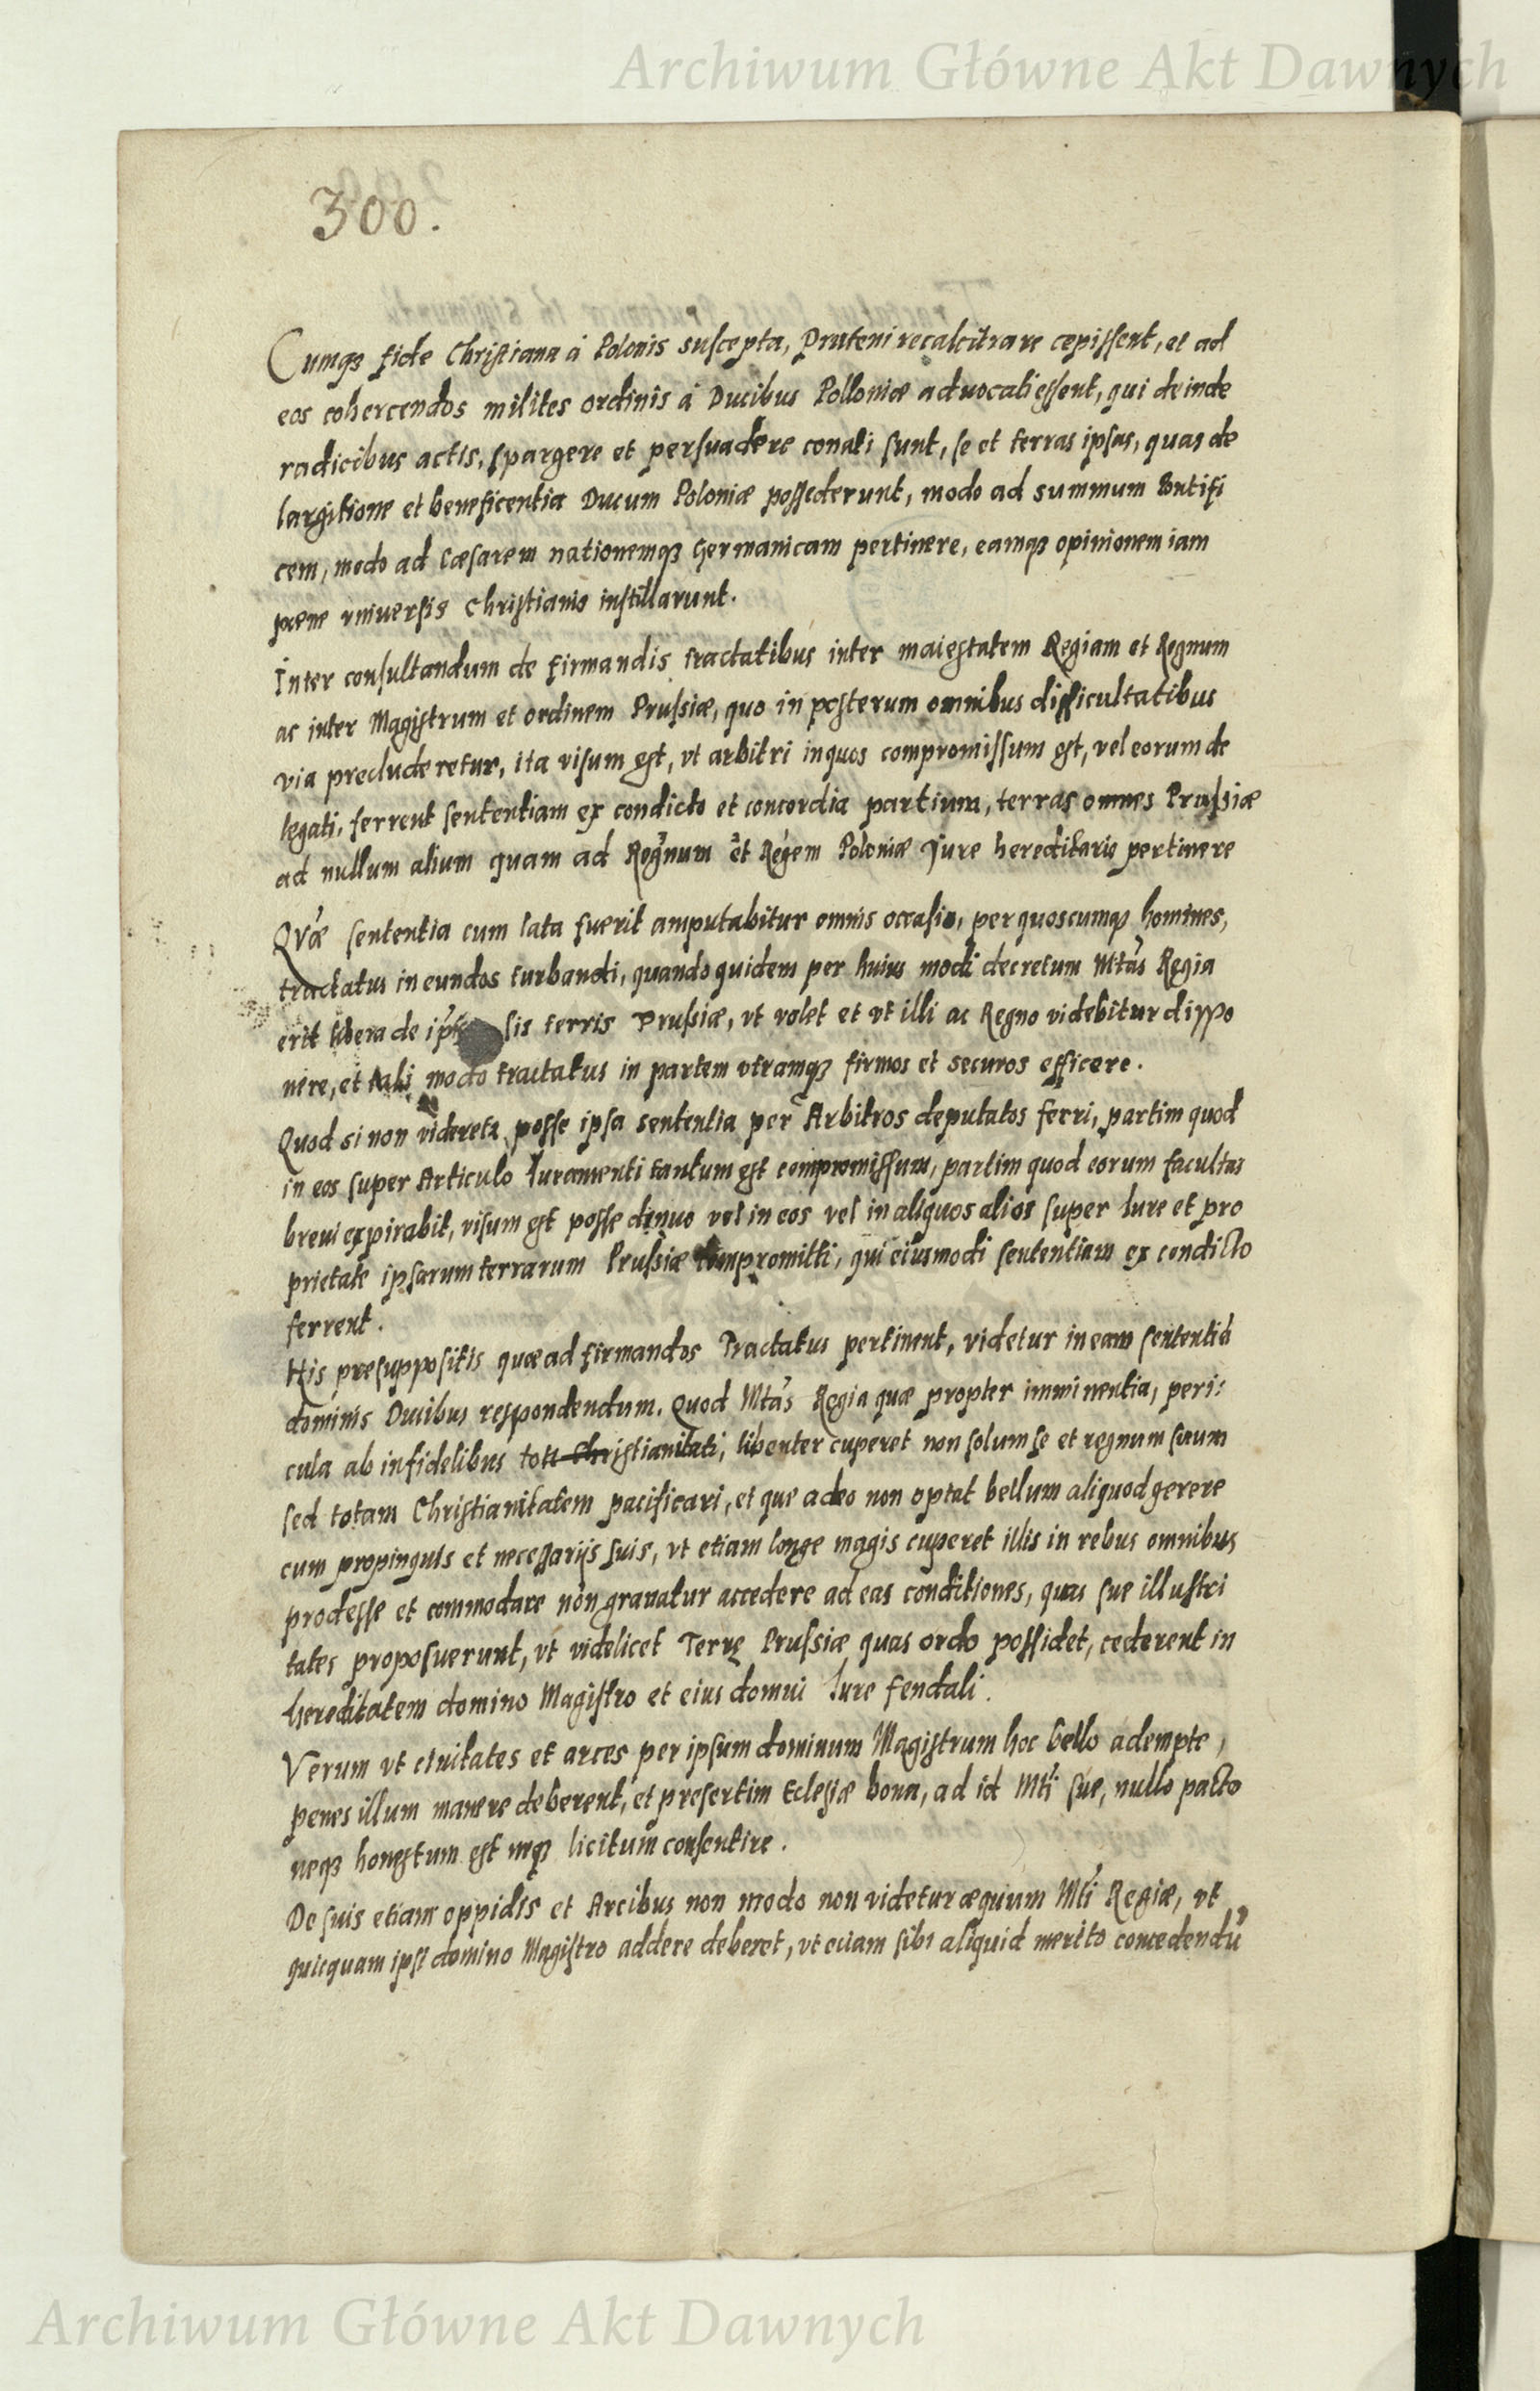 Archiwum Główne Akt Dawnych
300.
Cumqꝫ fide Christiana á Polonis suscepta, Pruteni recalcitrare cepissent, et ad
eos cohercendos milites ordinis á Ducibus Polloniæ aduocati essent, qui deinde
radicibus actis, spargere et persuadere conati sunt, se et terras ipsas, quas de
largitione et beneficentia Ducum Poloniæ possederunt, modo ad summum Pontifi
cem, modo ad Cæsarem nationemqꝫ Germanicam pertinere, eamqꝫ opinionem iam
pæne vniuersis Christianis instillarunt.
Inter consultandum de firmandis tractatibus inter maiestatem Regiam et Regnum
ac inter Magistrum et ordinem Prussiæ, quo in posterum omnibus difficultatibus
via precluderetur, ita visum est, vt arbitri in quos compromissum est, vel eorum de
legati, ferrent sententiam ex condicto et concordia partium, terras omnes Prussiæ
ad nullum alium quam ad Regnum et Regem Poloniæ Jure hereditario pertinere
Qvæ sententia cum lata fuerit amputabitur omnis occasio, per quoscumqꝫ homines,
tractatus ineundos turbandi, quandoquidem per huius modi decretum Mtás Regia
erit libera de sis terris Prussiæ, vt volet et vt illi ac Regno videbitur dispo
nere, et tali modo tractatus in partem vtramqꝫ firmos et securos efficere.
Quod si non videretur posse ipsa sententia per Arbitros deputatos ferri, partim quod
in eos super Articulo Iuramenti tantum est compromissum, partim quod eorum facultas
breui expirabit, visum est posse denuo vel in eos vel in aliquos alios super Iure et pro
prietate ipsarum terrarum Prussiæ compromitti, qui eiusmodi sententiam ex condicto
ferrent.
His presuppositis quæ ad firmandos Tractatus pertinent, videtur in eam sententiā
dominis Ducibus respondendum. Quod Mtás Regia quæ propter imminentia, peri:
cula ab infidelibus toti Christianitati, libenter cuperet non solum se et regnum suum
sed totam Christianitatem pacificari, et que adeo non optat bellum aliquod gerere
cum propinquis et necessarijs suis, vt etiam longe magis cuperet illis in rebus omnibus
prodesse et commodare non grauatur accedere ad eas conditiones, quas sue illustri
tates proposuerunt, vt videlicet Terrę Prussiæ quas ordo possidet, cederent in
hereditatem domino Magistro et eius domui Iure feudali.
Verum vt ciuitates et arces per ipsum dominum Magistrum hoc bello adempte,
penes illum manere deberent, et presertim Eclesiæ bona, ad id Mti sue, nullo pacto
neqꝫ honestum est neqꝫ licitum consentire.
De suis etiam oppidis et Arcibus non modo non videtur æquum Mti Regiæ, vt
quicquam ipsi domino Magistro addere deberet, vt eciam sibi aliquid merito concedendū
Archiwum Główne Akt Dawnych